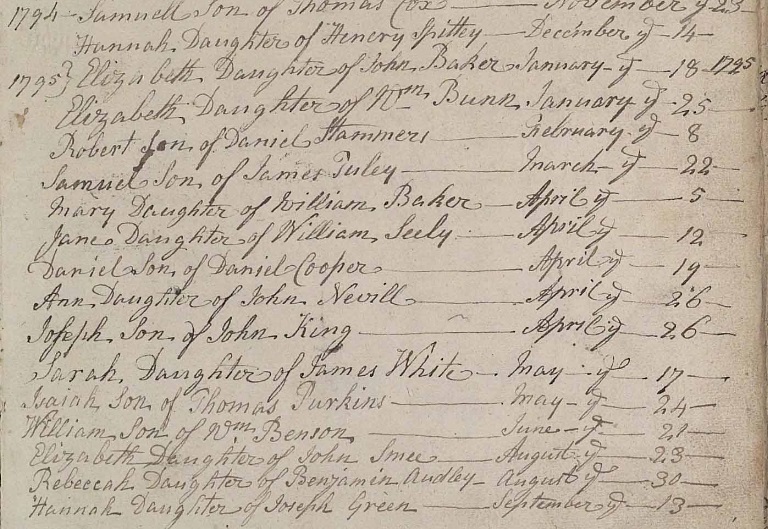 1794 - Samuell Son of Thomas Cox November ye 23
Hannah Daughter of Henery Spittey December ye 14
1795} Elizabeth Daughter of John Baker January ye 18 1795
Elizabeth Daughter of Wm Bunn January ye 25
Robert Son of Daniel Hammers February ye 8
Samuel Son of James Tuley March ye 22
Mary Daughter of William Baker April ye 5
Jane Daughter of William Seely April ye 12
Daniel Son of Daniel Cooper April ye 19
Ann Daughter of John Nevill April ye 26
Joseph Son of John King April ye 26
Sarah Daughter of James White May ye 17
Isaiah Son of Thomas Purkins May ye 24
William Son of Wm Benson June ye 21
Elizabeth Daughter of John Smee August ye 23
Rebeccah Daughter of Benjamin Audley August ye 30
Hannah Daughter of Joseph Green September ye 13